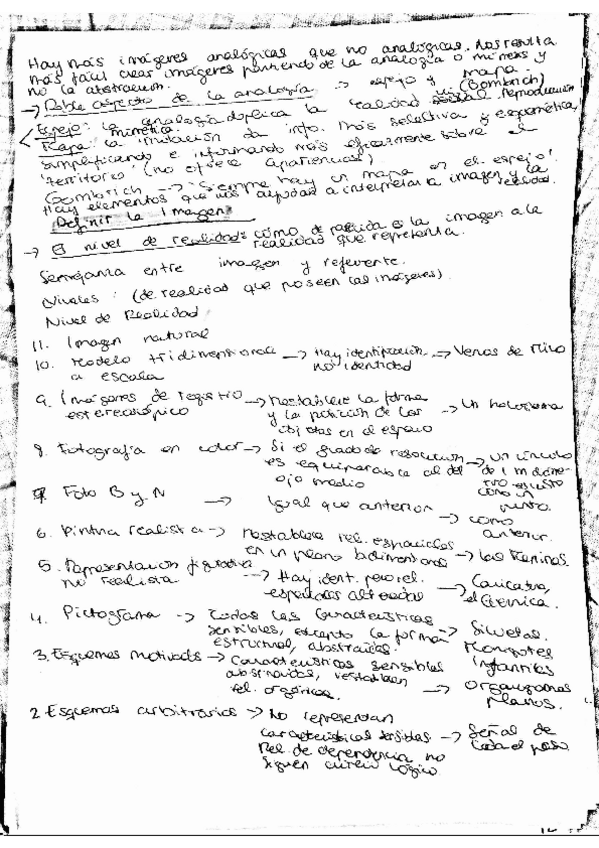 Hay más imágenes analógicas que no analógicas. Nos resulta
más fácil crear imágenes partiendo de la analogía o mímesis y
no la abstracción.
→ Doble aspecto de la analogía → espejo y mapa
(Gombrich)
Espejo: la analogía duplica la realidad. reproducción
mimética.
Mapa: la imitación da info. más selectiva y esquemática,
simplificando e informando más eficazmente sobre el
"territorio" (no ofrece apariencias)
Gombrich → "Siempre hay un mapa en el espejo".
Hay elementos que nos ayudan a interpretar la imagen y la
realidad.
Definir la Imagen:
→ El nivel de realidad: cómo de parecida es la imagen a la
realidad que representa.
Semejanza entre imagen y referente.
Niveles: (de realidad que poseen las imágenes).
Nivel de Realidad
11. Imagen natural
10. Modelo tridimensional → Hay identificación, → Venus de Milo
a escala no identidad
9. Imágenes de registro → Restablece la forma
estereoscópico y la posición de los → Un holograma
objetos en el espacio
8. Fotografía en color → Si el grado de resolución → un círculo
es equiparable al del de 1 m diáme-
ojo medio tro es visto
como un
punto.
7. Foto B y N → Igual que anterior → como
anterior.
6. Pintura realista → Restablece rel. espaciales
en un plano bidimensional → Las Meninas.
5. Representación figurativa
no realista → Hay ident. pero rel. → Caricatura,
espaciales alteradas el Guernica.
4. Pictograma → todas las características
sensibles, excepto la forma → Siluetas.
estructural, abstraídas. Monigotes
infantiles
3. Esquemas motivados → Características sensibles
abstraídas, restablecen
rel. orgánicas. → Organigramas
planos.
2. Esquemas arbitrarios → No representan
características sensibles → Señal de
Rel. de dependencia no ceda el paso
siguen criterio lógico.